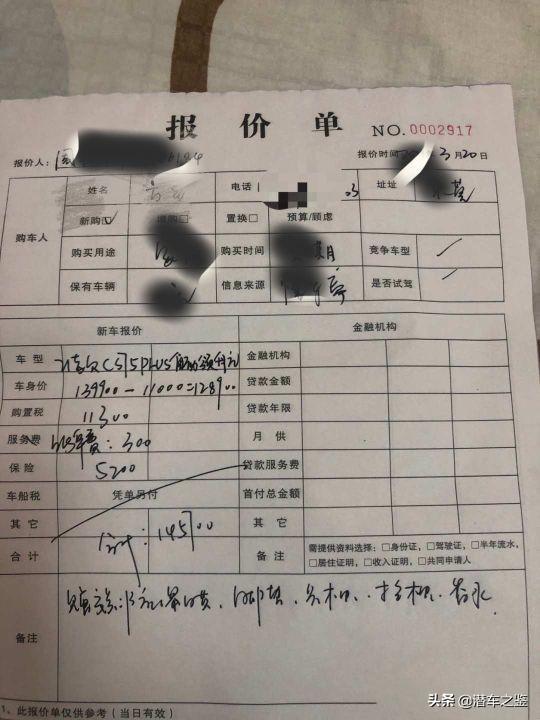 报价单 NO.0002917
报价人： 报价时间 3月20日
购车人 姓名 电话 址址
新购☑ 增购□ 置换□ 预算/顾虑
购买用途 购买时间 月 竞争车型
保有车辆 信息来源 是否试驾
新车报价 金融机构
车型 CS75PLUS 金融机构
车身价 139900-11000=128900 贷款金额
购置税 11300 贷款年限
服务费 费：300 月供
保险 5200 贷款服务费
车船税 凭单另付 首付总金额
其它 合计：145700 其它
合计 备注 需提供资料选择：□身份证，□驾驶证，□半年流水，
□居住证明，□收入证明，□共同申请人
备注 脚垫、香水
1、此报价单仅供参考（当日有效）
头条 @潜车之鉴